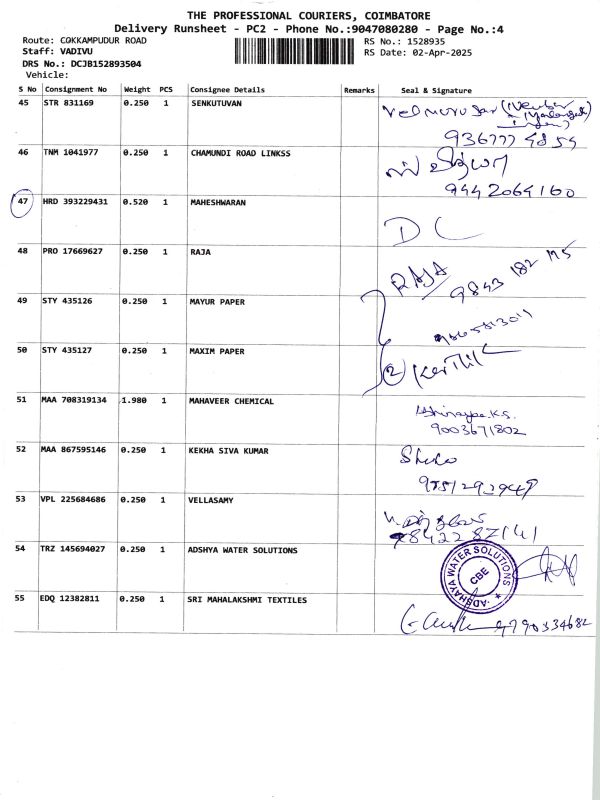 THE PROFESSIONAL COURIERS, COIMBATORE
Delivery Runsheet - PC2 - Phone No.:9047080280 - Page No.:4
Route: COKKAMPUDUR ROAD
RS No.: 1528935
Staff: VADIVU
RS Date: 02-Apr-2025
DRS No.: DCJB152893504
Vehicle:
S No Consignment No Weight PCS Consignee Details Remarks Seal & Signature
45 STR 831169 0.250 1 SENKUTUVAN
46 TNM 1041977 0.250 1 CHAMUNDI ROAD LINKSS
9442064160
47 HRD 393229431 0.520 1 MAHESHWARAN
DC
48 PRO 17669627 0.250 1 RAJA
RAJA
49 STY 435126 0.250 1 MAYUR PAPER
50 STY 435127 0.250 1 MAXIM PAPER
2
51 MAA 708319134 1.980 1 MAHAVEER CHEMICAL
9003671802
52 MAA 867595146 0.250 1 KEKHA SIVA KUMAR
53 VPL 225684686 0.250 1 VELLASAMY
54 TRZ 145694027 0.250 1 ADSHYA WATER SOLUTIONS
ADSHAYA WATER SOLUTIONS
CBE
55 EDQ 12382811 0.250 1 SRI MAHALAKSHMI TEXTILES
9790334682